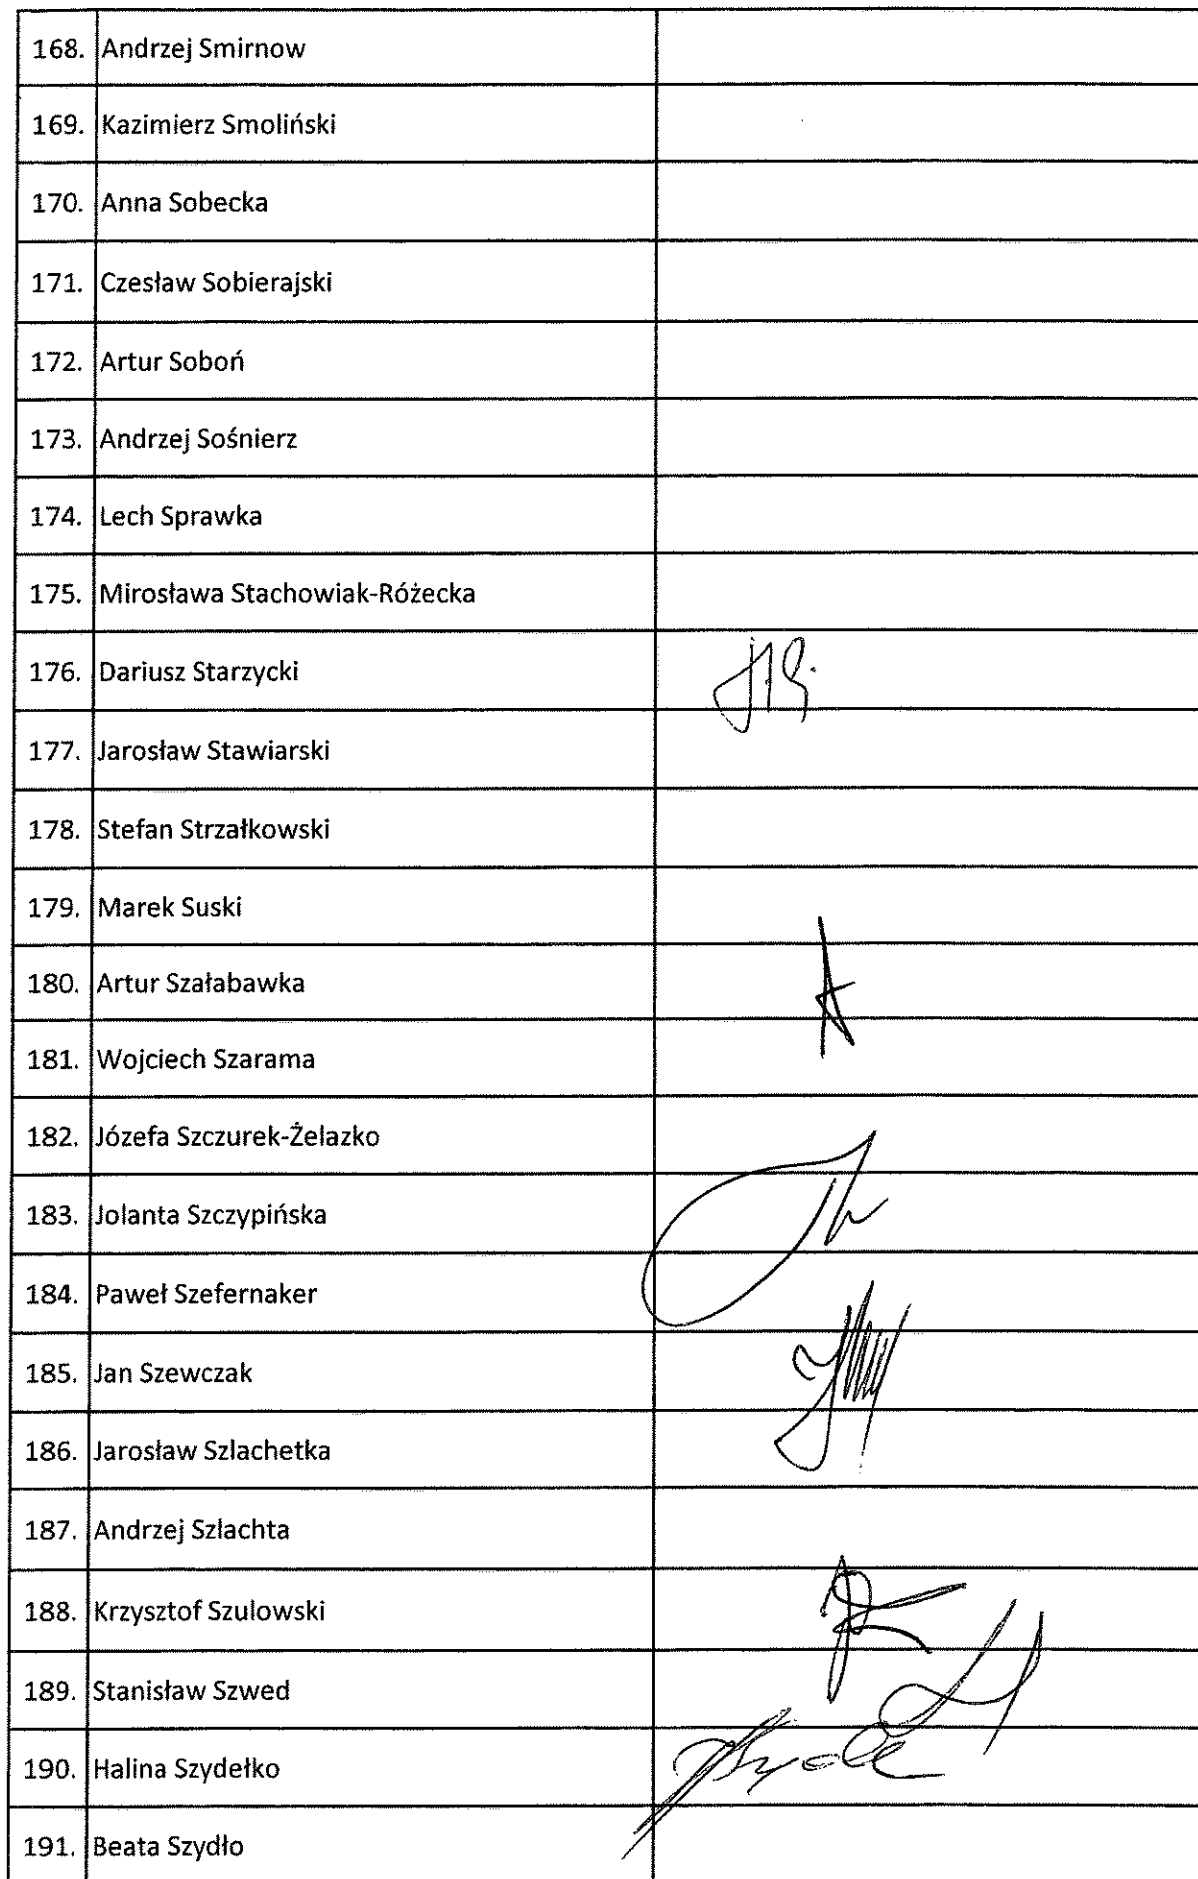 168. Andrzej Smirnow
169. Kazimierz Smoliński
170. Anna Sobecka
171. Czesław Sobierajski
172. Artur Soboń
173. Andrzej Sośnierz
174. Lech Sprawka
175. Mirosława Stachowiak-Różecka
176. Dariusz Starzycki
177. Jarosław Stawiarski
178. Stefan Strzałkowski
179. Marek Suski
180. Artur Szałabawka
181. Wojciech Szarama
182. Józefa Szczurek-Żelazko
183. Jolanta Szczypińska
184. Paweł Szefernaker
185. Jan Szewczak
186. Jarosław Szlachetka
187. Andrzej Szlachta
188. Krzysztof Szulowski
189. Stanisław Szwed
190. Halina Szydełko
191. Beata Szydło